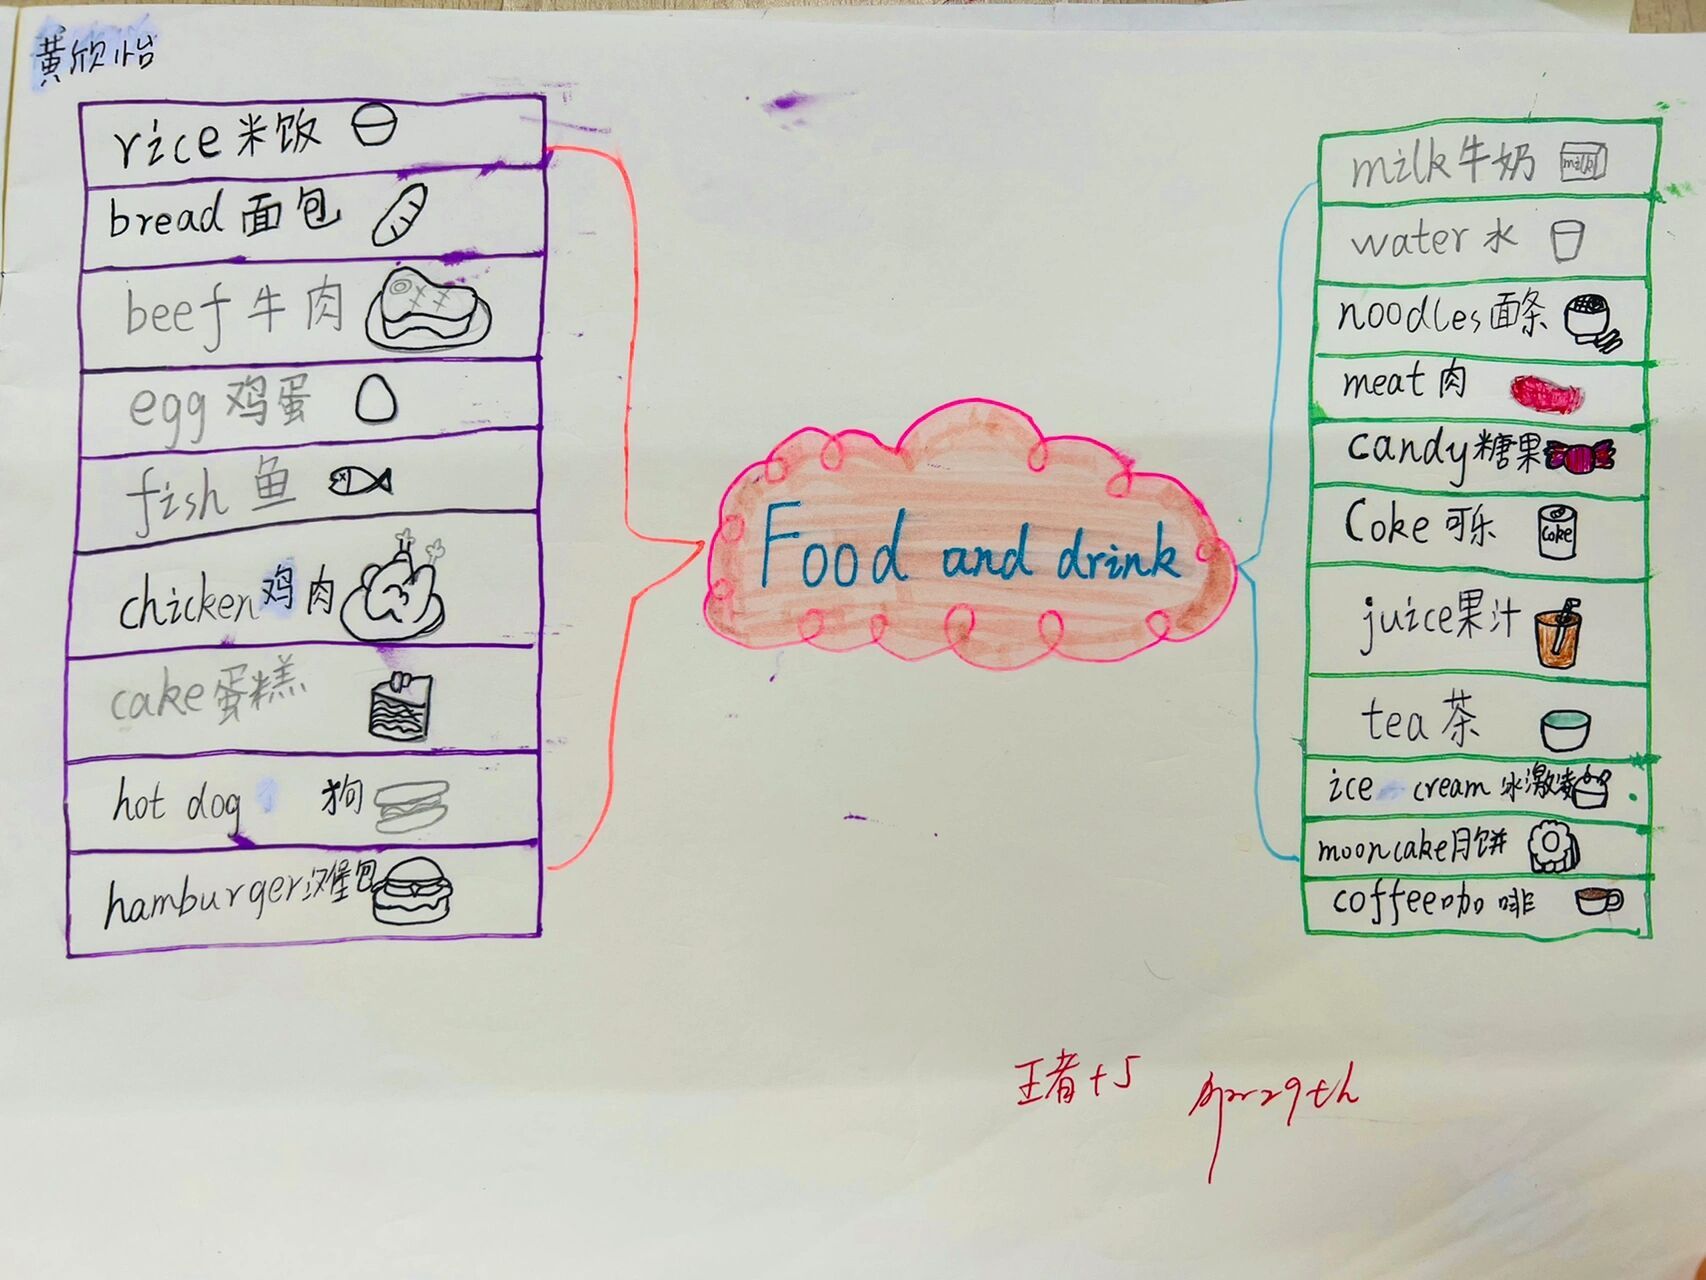 黄欣怡
rice 米饭
bread 面包
beef 牛肉
egg 鸡蛋
fish 鱼
chicken 鸡肉
cake 蛋糕
hot dog 狗
hamburger 汉堡包
Food and drink
milk 牛奶 milk
water 水
noodles 面条
meat 肉
candy 糖果
Coke 可乐 Coke
juice 果汁
tea 茶
ice cream 冰激凌
mooncake 月饼
coffee 咖啡
王者+5 Apr 29th